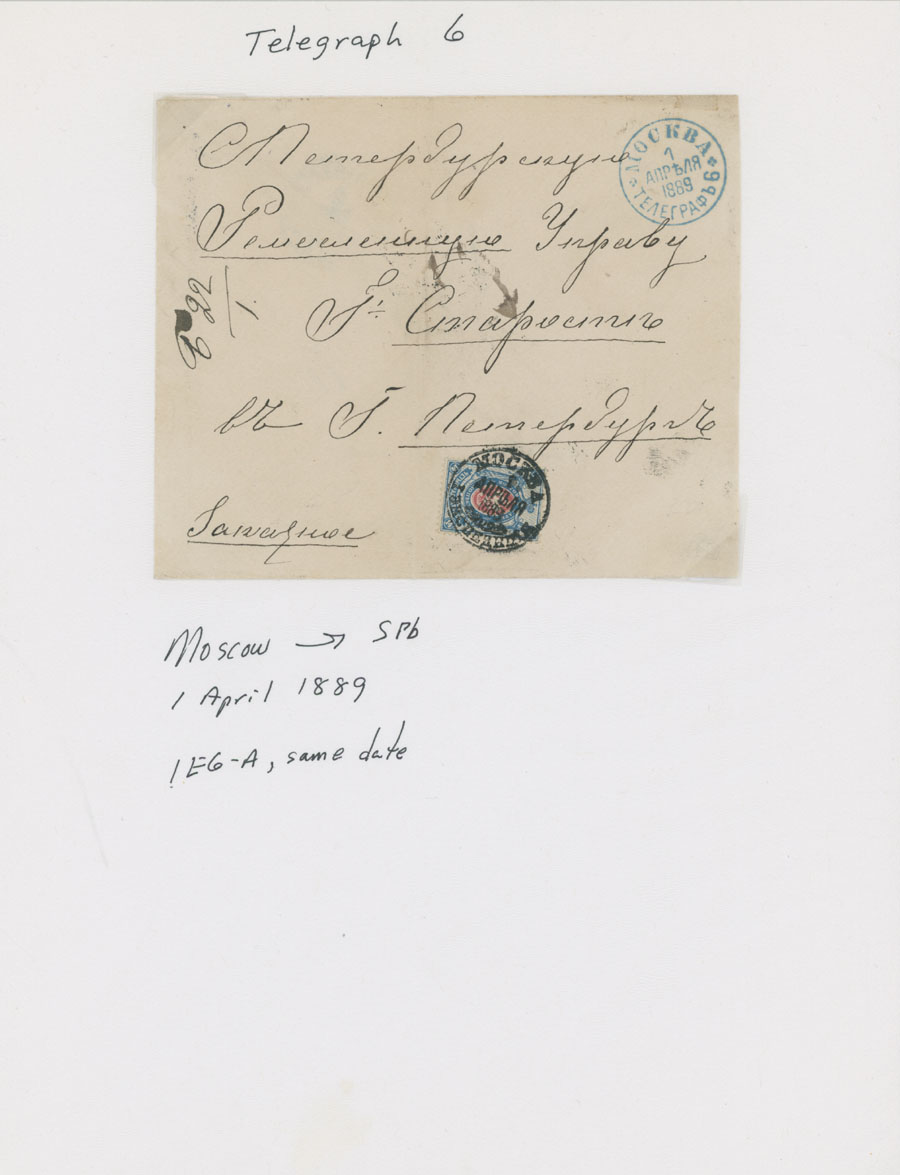 Telegraph 6
МОСКВА
1
АПРѢЛЯ
1889
ТЕЛЕГРАФЪ 6
С Петербургскую
Ремесленную Управу
Гнъ Старостѣ
въ Г. Петербургѣ
22
1
МОСКВА
1
АПРѢЛЯ
1889
Заказное
Moscow → SPb
1 April 1889
1E6-A, same date